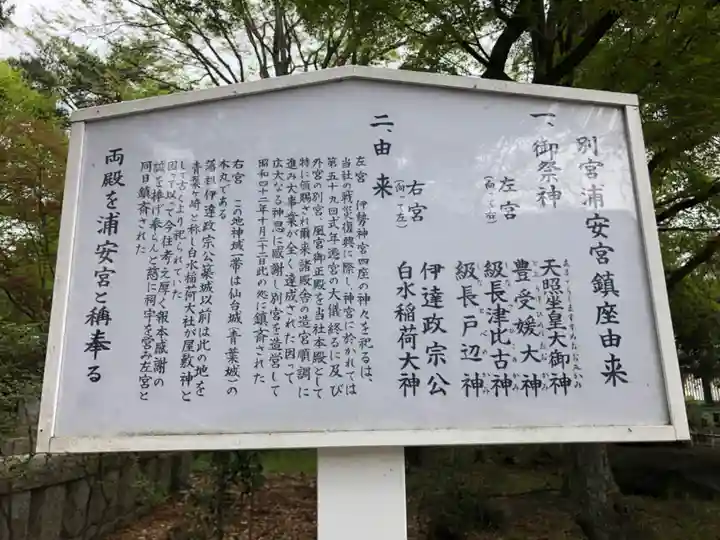 別宮浦安宮鎮座由来
一、御祭神
左宮
(向って右)
天照坐皇大御神
豊受媛大神
級長津比古神
級長戸辺神
右宮
(向って左)
伊達政宗公
白水稲荷大神
二、由来
左宮 伊勢神宮四座の神々を祀るは、
当社の戦災復興に際し、神宮に於かれては
第五十九回式年遷宮の大儀終るに及び
外宮の別宮、風宮御正殿を当社本殿として
特に領賜され爾来諸殿舎の造営順調に
進み大事業が全く達成された因って
広大なる神恩に感謝し別宮を造営して
昭和四十二年十月二十二日此の処に鎮斎された
右宮 この地神域一帯は仙台城(青葉城)の
本丸である
藩祖伊達政宗公築城以前は此の地を
青葉ケ崎と称し白水稲荷大社が屋敷神と
して古くより祀られていた
因って以上の住考え厚く報本感謝の
誠を捧げ奉らんと茲に祠宇を営み左宮と
同日鎮斎された
両殿を浦安宮と稱奉る